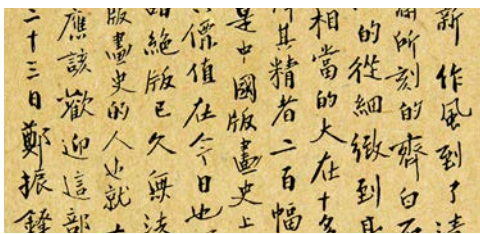 新作風到了清
所刻的齊白石
的從細緻到
相當的大在十多
其精者二百幅
是中國版畫史上
價值在今日也
絕版已久無法
版畫史的人也就
應該歡迎這部
二十三日鄭振鐸